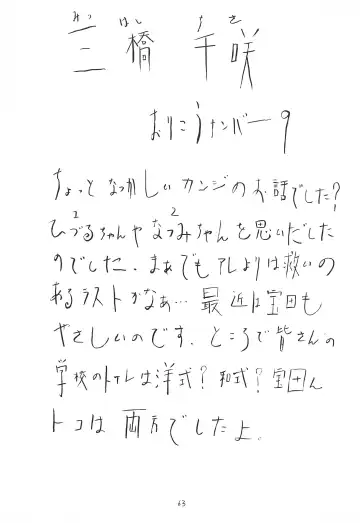 みつ はし ち さ
三橋 千咲
おりこうナンバー9
ちょっと なつかしいカンジのお話でした?
1 2
ひづるちゃんや なつみちゃんを思いだした
のでした. まぁでもアレよりは救いの
あるラストかなぁ… 最近は宝田も
やさしいのです. ところで皆さんの
学校のトイレは洋式? 和式? 宝田ん
トコは両方でしたよ。
63